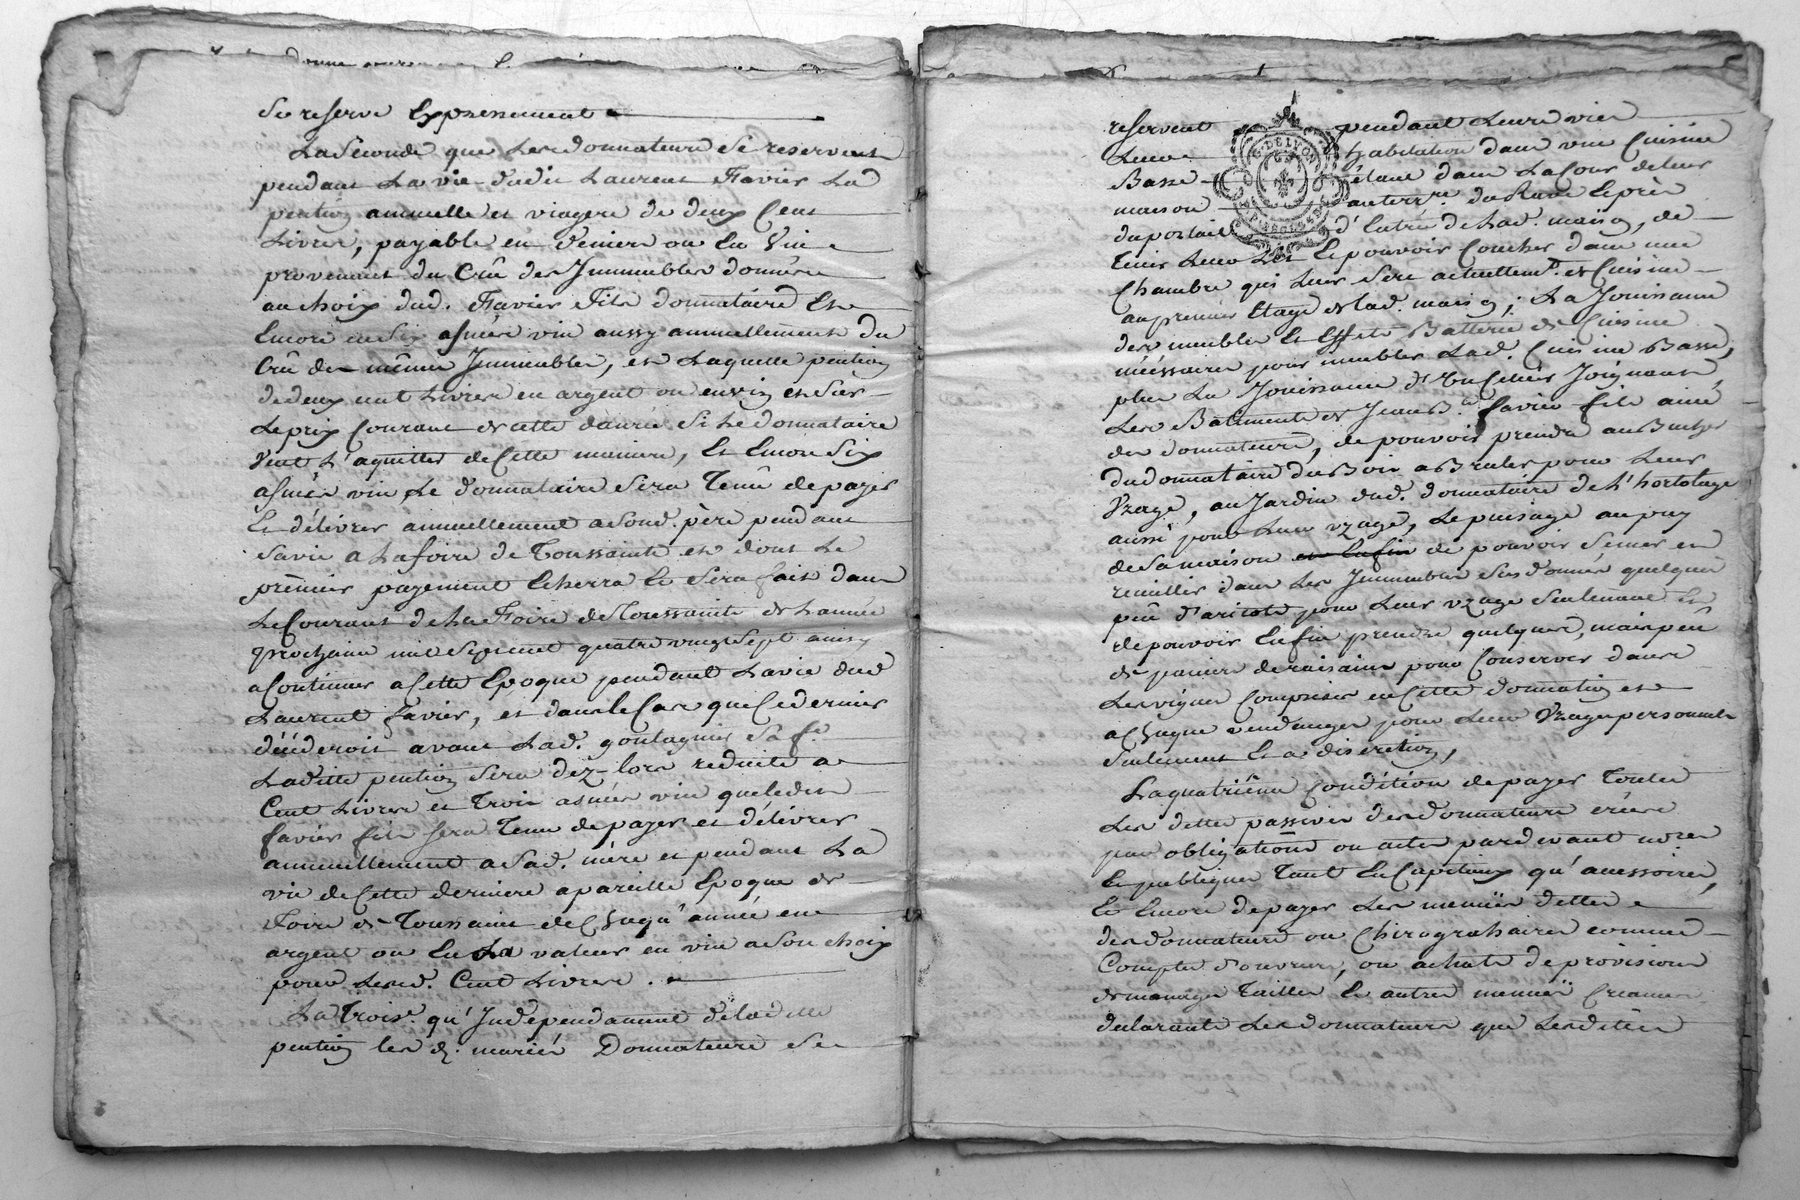 se reserve Expressement
La Seconde que Les donnateurs se reservent
pendant La vie dudit Laurent Favier La
pention annuelle et viagere de deux Cent
Livres, payable en deniers ou En Vin
provenant du Crû des Immeubles donnés
au choix dud. Favier Fils donnataire Et
Encore de Six asnées vin aussy annuellement du
Crû des mêmes Immeubles, et Laquelle pention
de deux cent Livres en argent ou en vin est sur
Le prix Courant de cette danrée Si Le donnataire
veut s'aquitter de Cette maniere, Et Encore Six
asnées vin Le donnataire Sera Tenû de payer
Et délivrer annuellement a Sond. père pendant
Sa vie a La foire de Toussaints et dont Le
premier payement Echerra Et Sera fait dans
Le Courant de La Foire de Toussaints de L'année
prochaine mil Sept cent quatre vingt Sept ainsy
a Continuer a Cette Epoque pendant La vie dud
Laurent favier, et dans le Cas que Ce dernier
décéderoit avant Lad. goutagnis Sa fe
Laditte pention Sera dez-lors reduite a
Cent Livres et Trois asnées vin que ledit
favier fils sera Tenu de payer et délivrer
annuellement a Sad. mère et pendant La
vie de Cette derniere a pareille Epoque de
Foire de Toussaint de Chaqu'année en
argent ou En La valeur en vin a Son choix
pour Lesd. Cent Livres.
La Troise qu'Independament de ladette
pention les d. mariés Donnateurs Se
reservent pendant Leurs vies
Leur habitation dans une Cuisine
Basse étant dans La Cour de leur
maison du Lieu Et près
du portail d'Entrée de Lad. maison, de
Tenir Leur Lit Et pouvoir Coucher dans une
Chambre qui Leur Sert actuellemt. de Cuisine
au premier Etage de lad. maison; La Jouissance
des meubles Et Effets Batterie de Cuisine
nécéssaires pour meubler Lad. Cuisine Basse,
plus La Jouissance d'Un Celier Joignant
Les Batiments de Favier fils ainé
des donnateurs, de pouvoir prendre au Bucher
du donnataire du Bois a Bruler pour Leur
Vzage, au Jardin dud. donnataire de L'hortolage
aussi pour Leur vzage, Le puisage au puy
de Sa maison et Enfin de pouvoir Semer et
recuillir dans Les Immeubles Sus donnés quelque
peû d'aricots pour Leur vzage Seulement Et
de pouvoir Enfin prendre quelques, mais peû
de paniers de raisains pour Conserver dans
Les vignes Comprises en Cette donnation et
a Chaque vendanges pour Leur Vzage personnel
Seulement Et a discretion,
La quatriême Condition de payer Toutes
Les dettes passives des donnateurs créés
par obligations ou actes pardevant nores
Et publiques Tant En Capitaux qu'accessoires,
Et Encore de payer Les menuës dettes
des donnateurs ou Chirograhaires comme
Comptes d'ouvriers, ou achats de provisions
de menage Tailles Et autres menuës Creances
declarants Les donnateurs que Lesdites
G. DE LYON